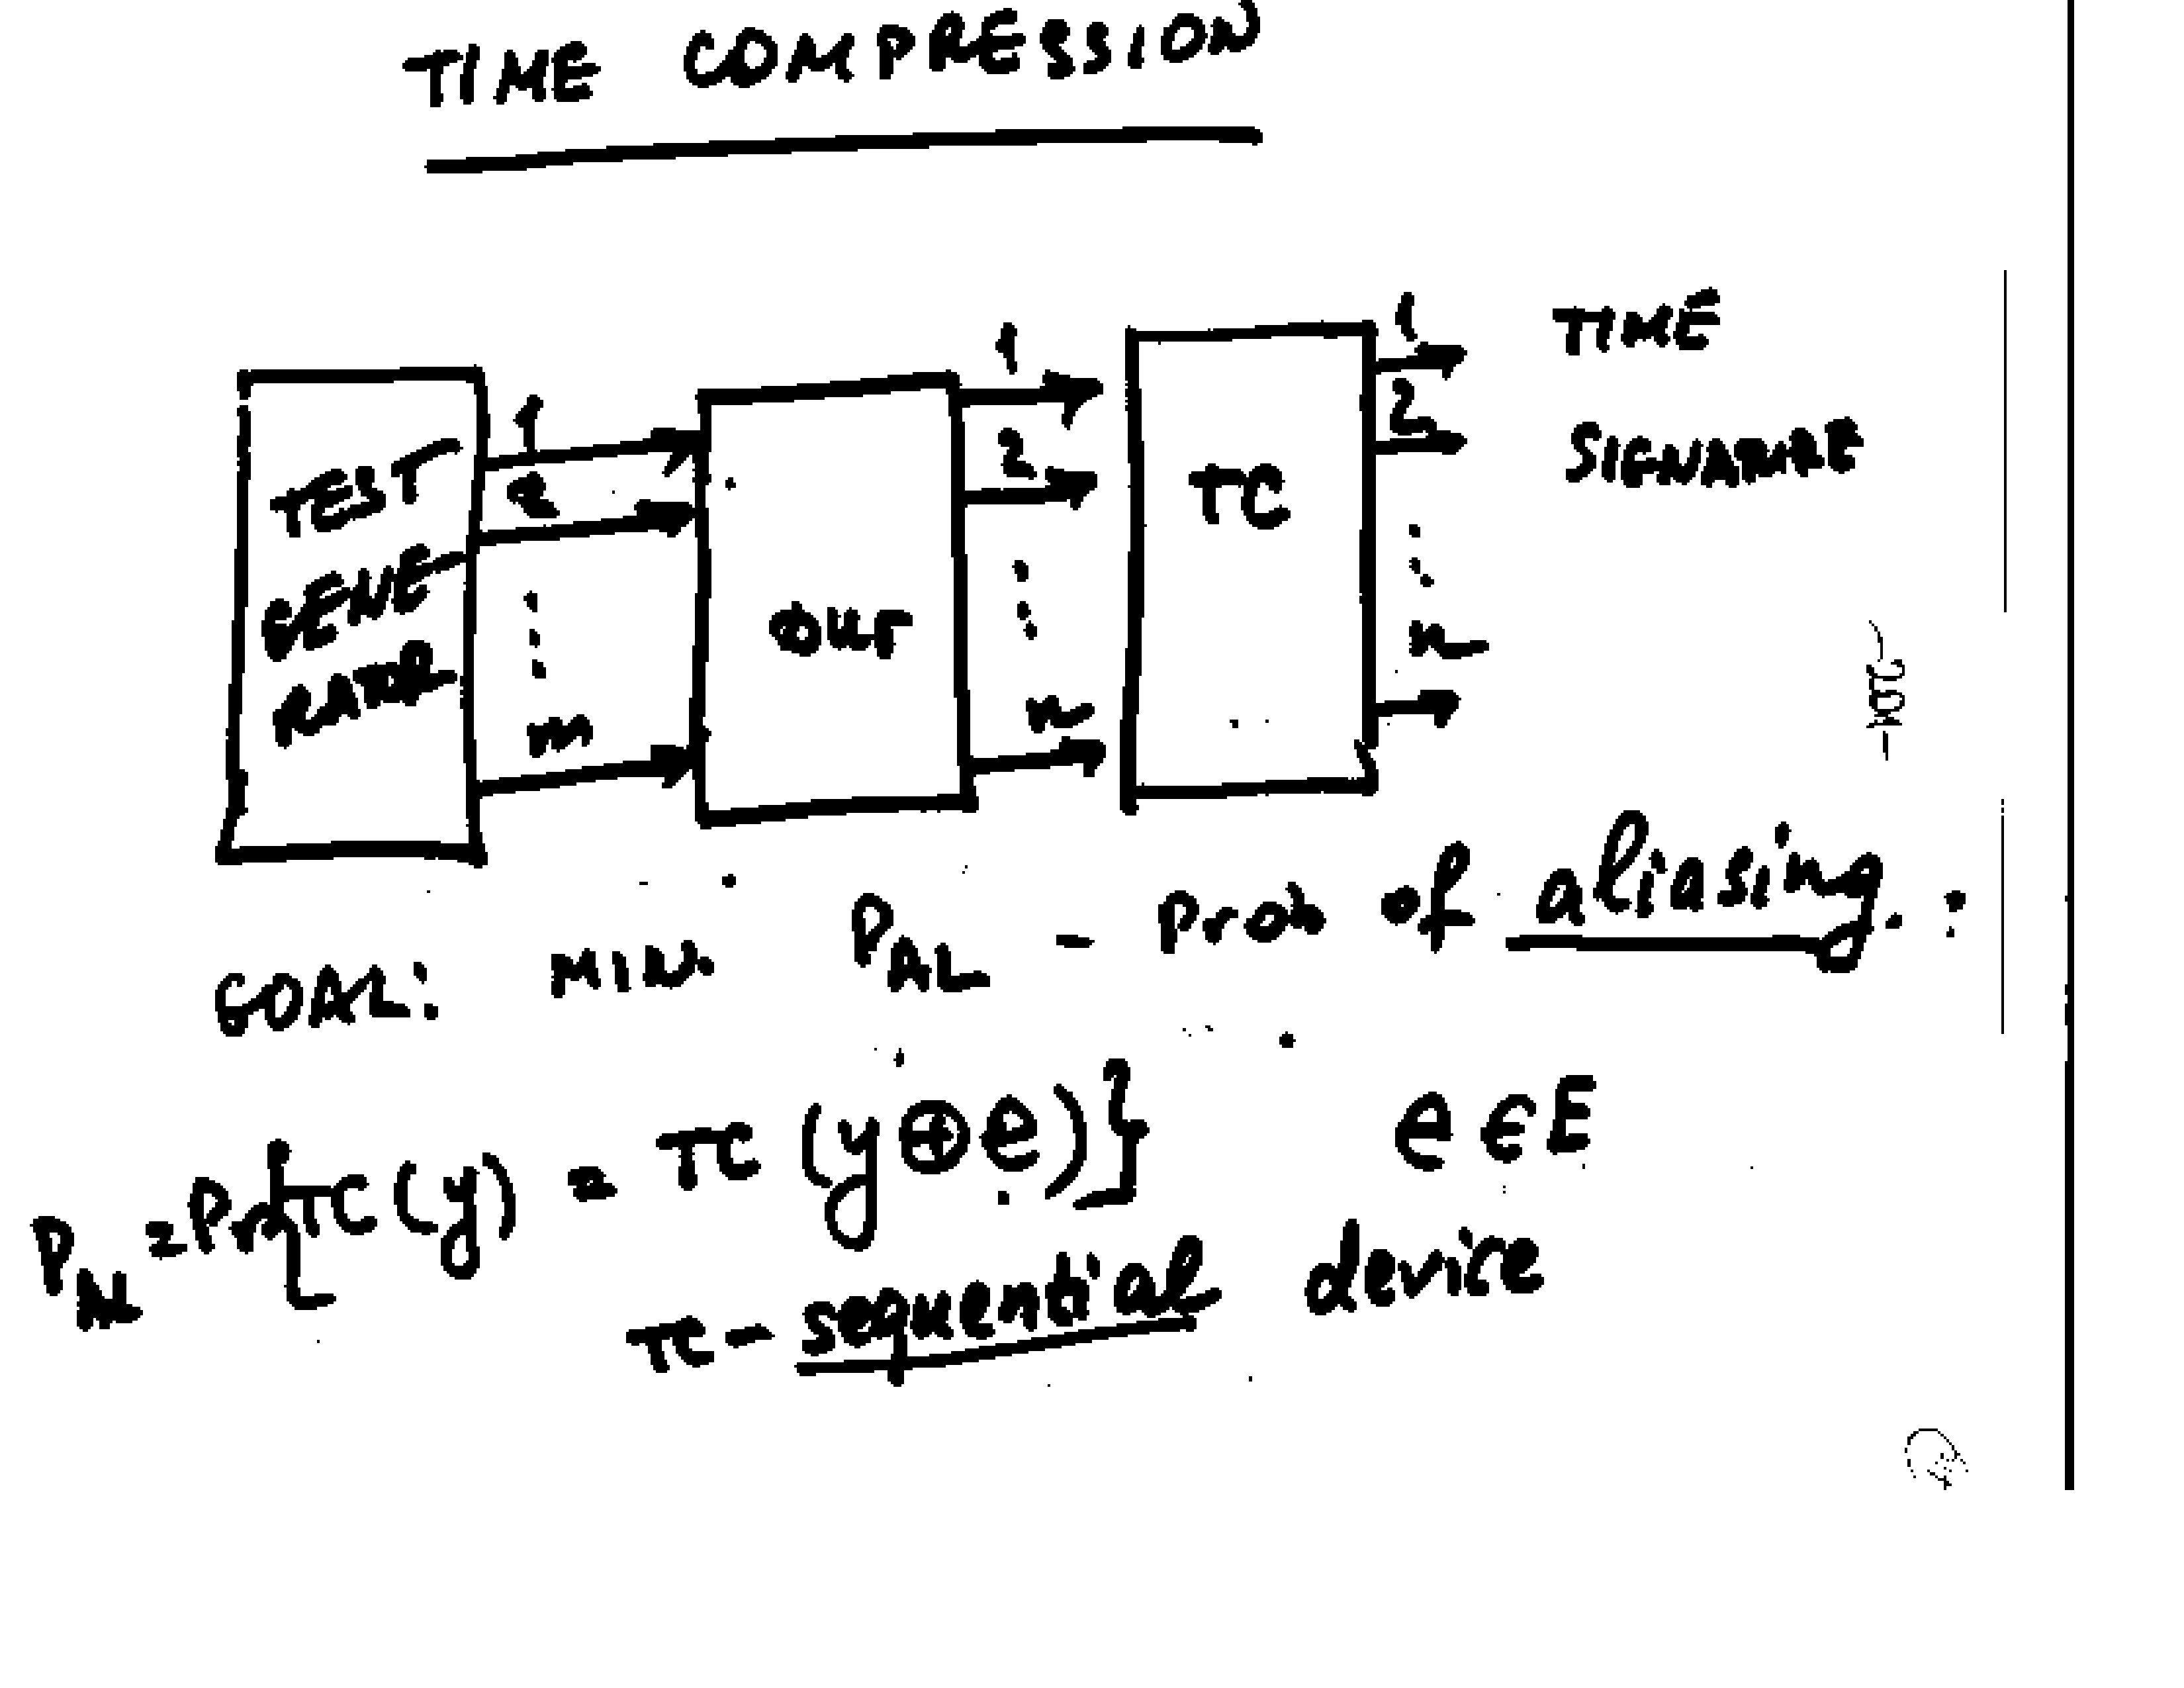 TIME COMPRESSION
TEST
GENE-
RATOR
1
2
⋮
m
DUT
1
2
⋮
n
TC
1
2
⋮
n
TIME
SIGNATURE
GOAL: MIN. P_AL - Prob of aliasing.
P_AL = Pr{TC(y) = TC(y⊕e)} e ∈ E
TC - sequential device